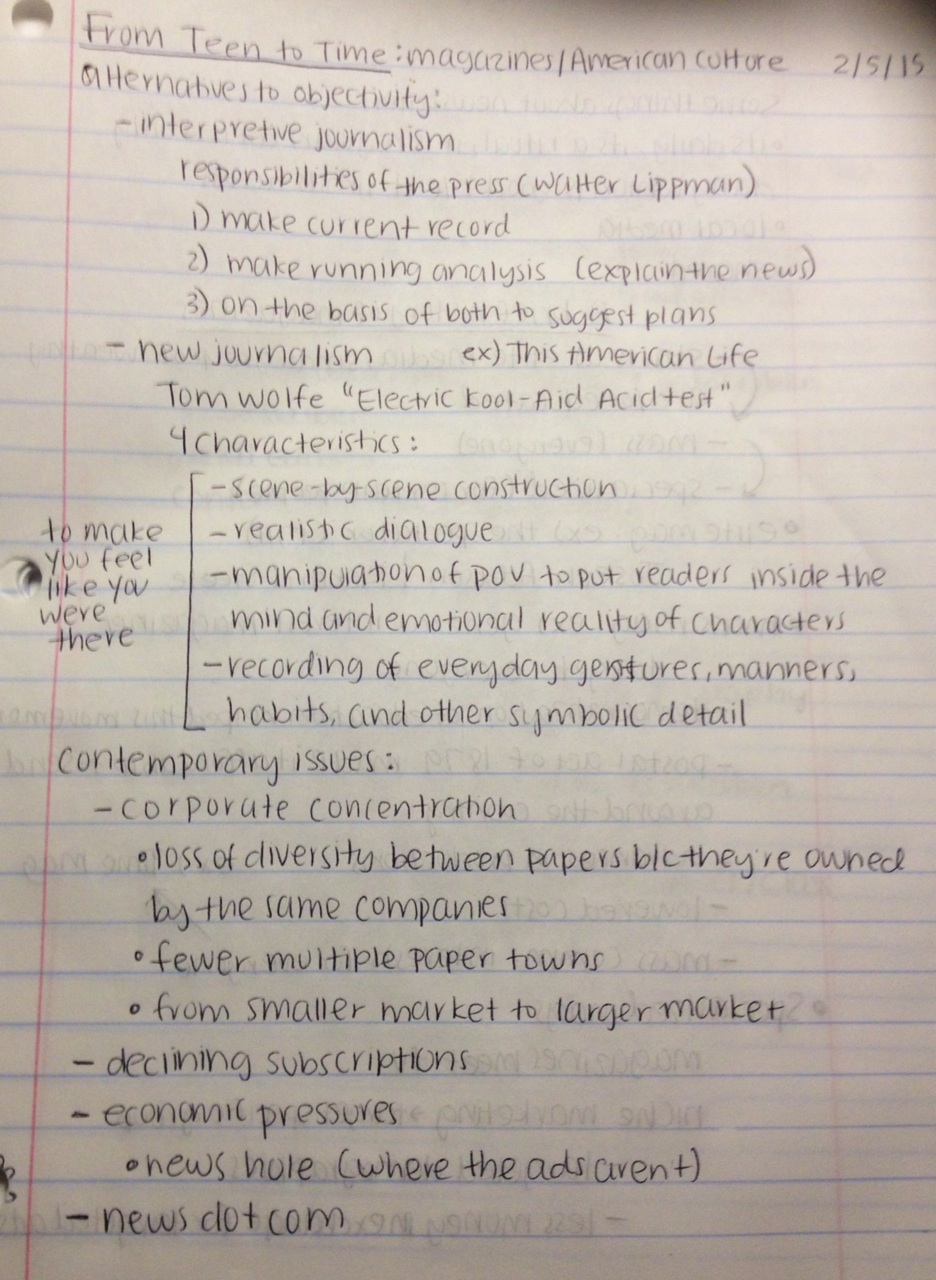 From Teen to Time: magazines/American culture 2/5/15
alternatives to objectivity:
- interpretive journalism
responsibilities of the press (Walter Lippman)
1) make current record
2) make running analysis (explain the news)
3) on the basis of both to suggest plans
- new journalism ex) This American Life
Tom Wolfe "Electric Kool-Aid Acid test"
4 characteristics:
- scene-by-scene construction
- realistic dialogue
- manipulation of pov to put readers inside the
mind and emotional reality of characters
- recording of everyday gestures, manners,
habits, and other symbolic detail
to make
you feel
like you
were
there
contemporary issues:
- corporate concentration
• loss of diversity between papers b/c they're owned
by the same companies
• fewer multiple paper towns
• from smaller market to larger market
- declining subscriptions
- economic pressures
• news hole (where the ads arent)
- news dot com